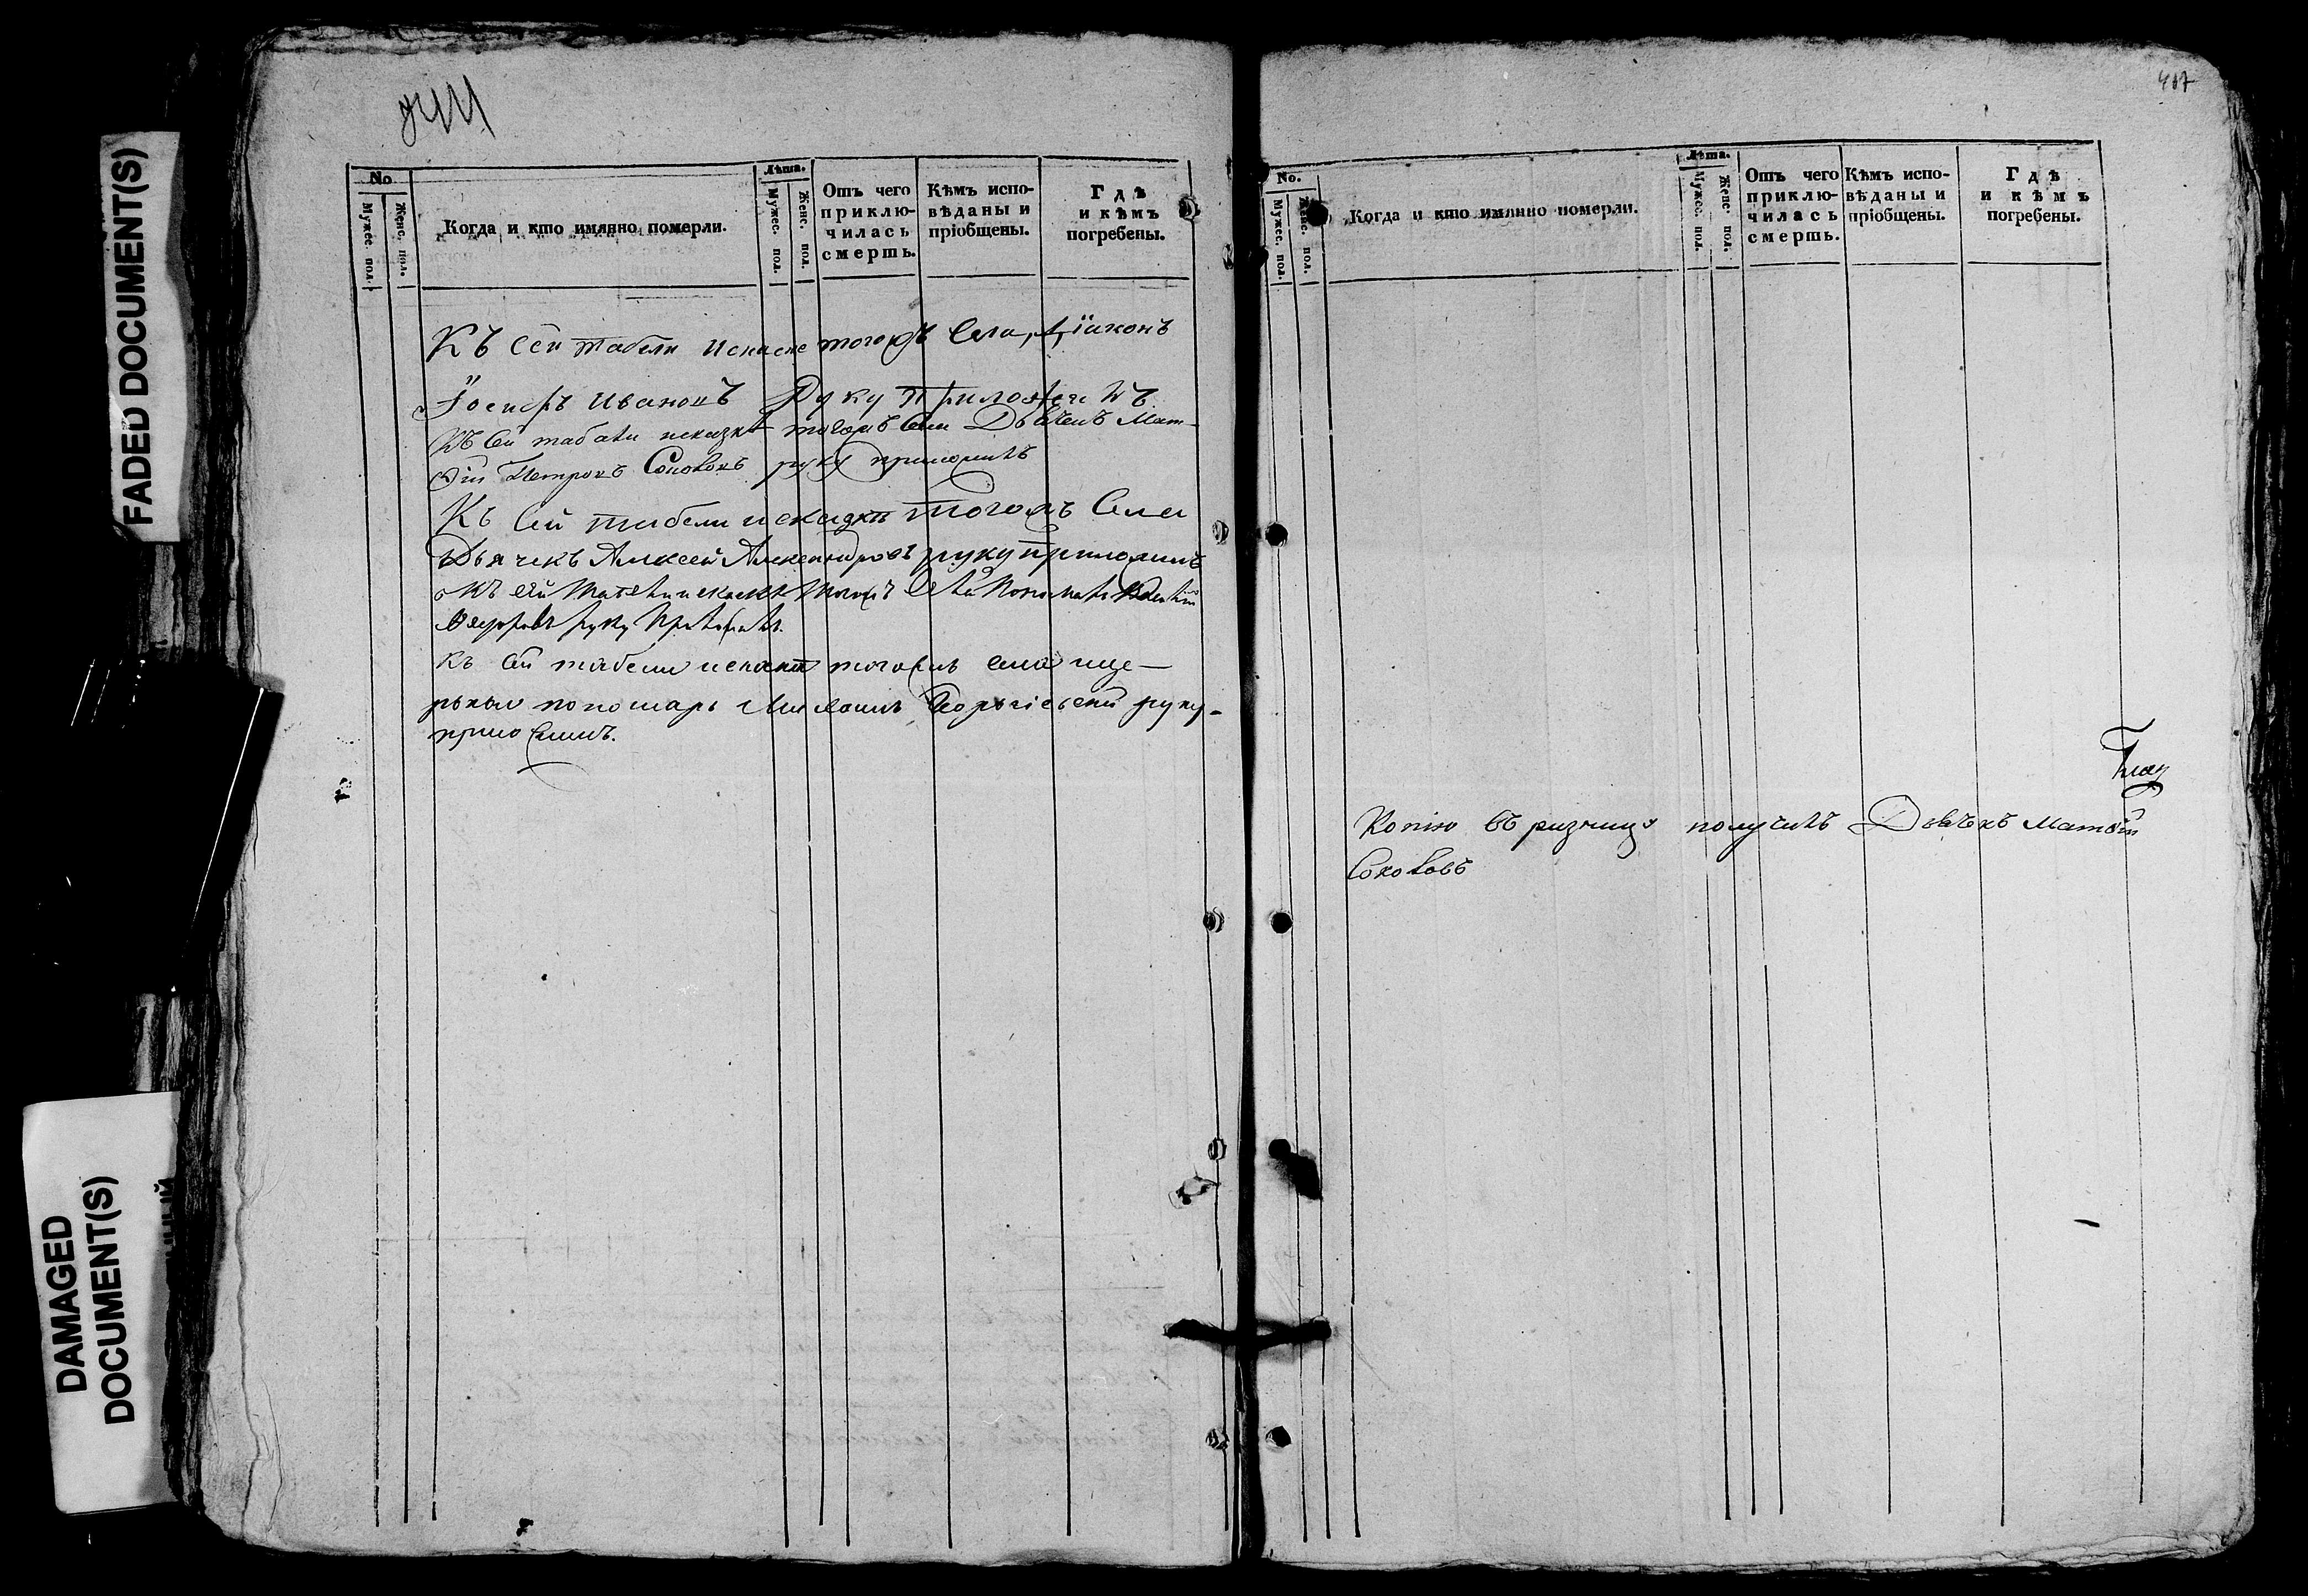 FADED DOCUMENT(S)
DAMAGED
DOCUMENT(S)
No
Мужес. пол.
Женс. пол.
Когда и кто имянно померли.
Лѣта.
Мужес. пол.
Женс. пол.
Отъ чего
приклю-
чилась
смерть.
Кѣмъ испо-
вѣданы и
пріобщены.
Гдѣ
и кѣмъ
погребены.
Къ сей табели тогожъ Села, Діаконъ
Іосифъ Ивановъ Руку Приложилъ
Къ сей табели тогожъ села Дьячекъ Мат-
ѳій Петровъ Соколовъ руку приложилъ
Къ сей табели тогожъ Села
Дьячекъ Алексей Александровъ руку приложилъ
Къ сей тогожъ села Пономарь
руку приложилъ.
къ сей табели тогожъ села це-
ркви пономарь Георгіевскій руку
приложилъ.
407
No.
Мужес. пол.
Женс. пол.
Когда и кто имянно померли.
Лѣта.
Мужес. пол.
Женс. пол.
Отъ чего
приклю-
чилась
смерть.
Кѣмъ испо-
вѣданы и
пріобщены.
Гдѣ
и кѣмъ
погребены.
Копію въ ризницу получилъ Дьячекъ Матѳій
Соколовъ